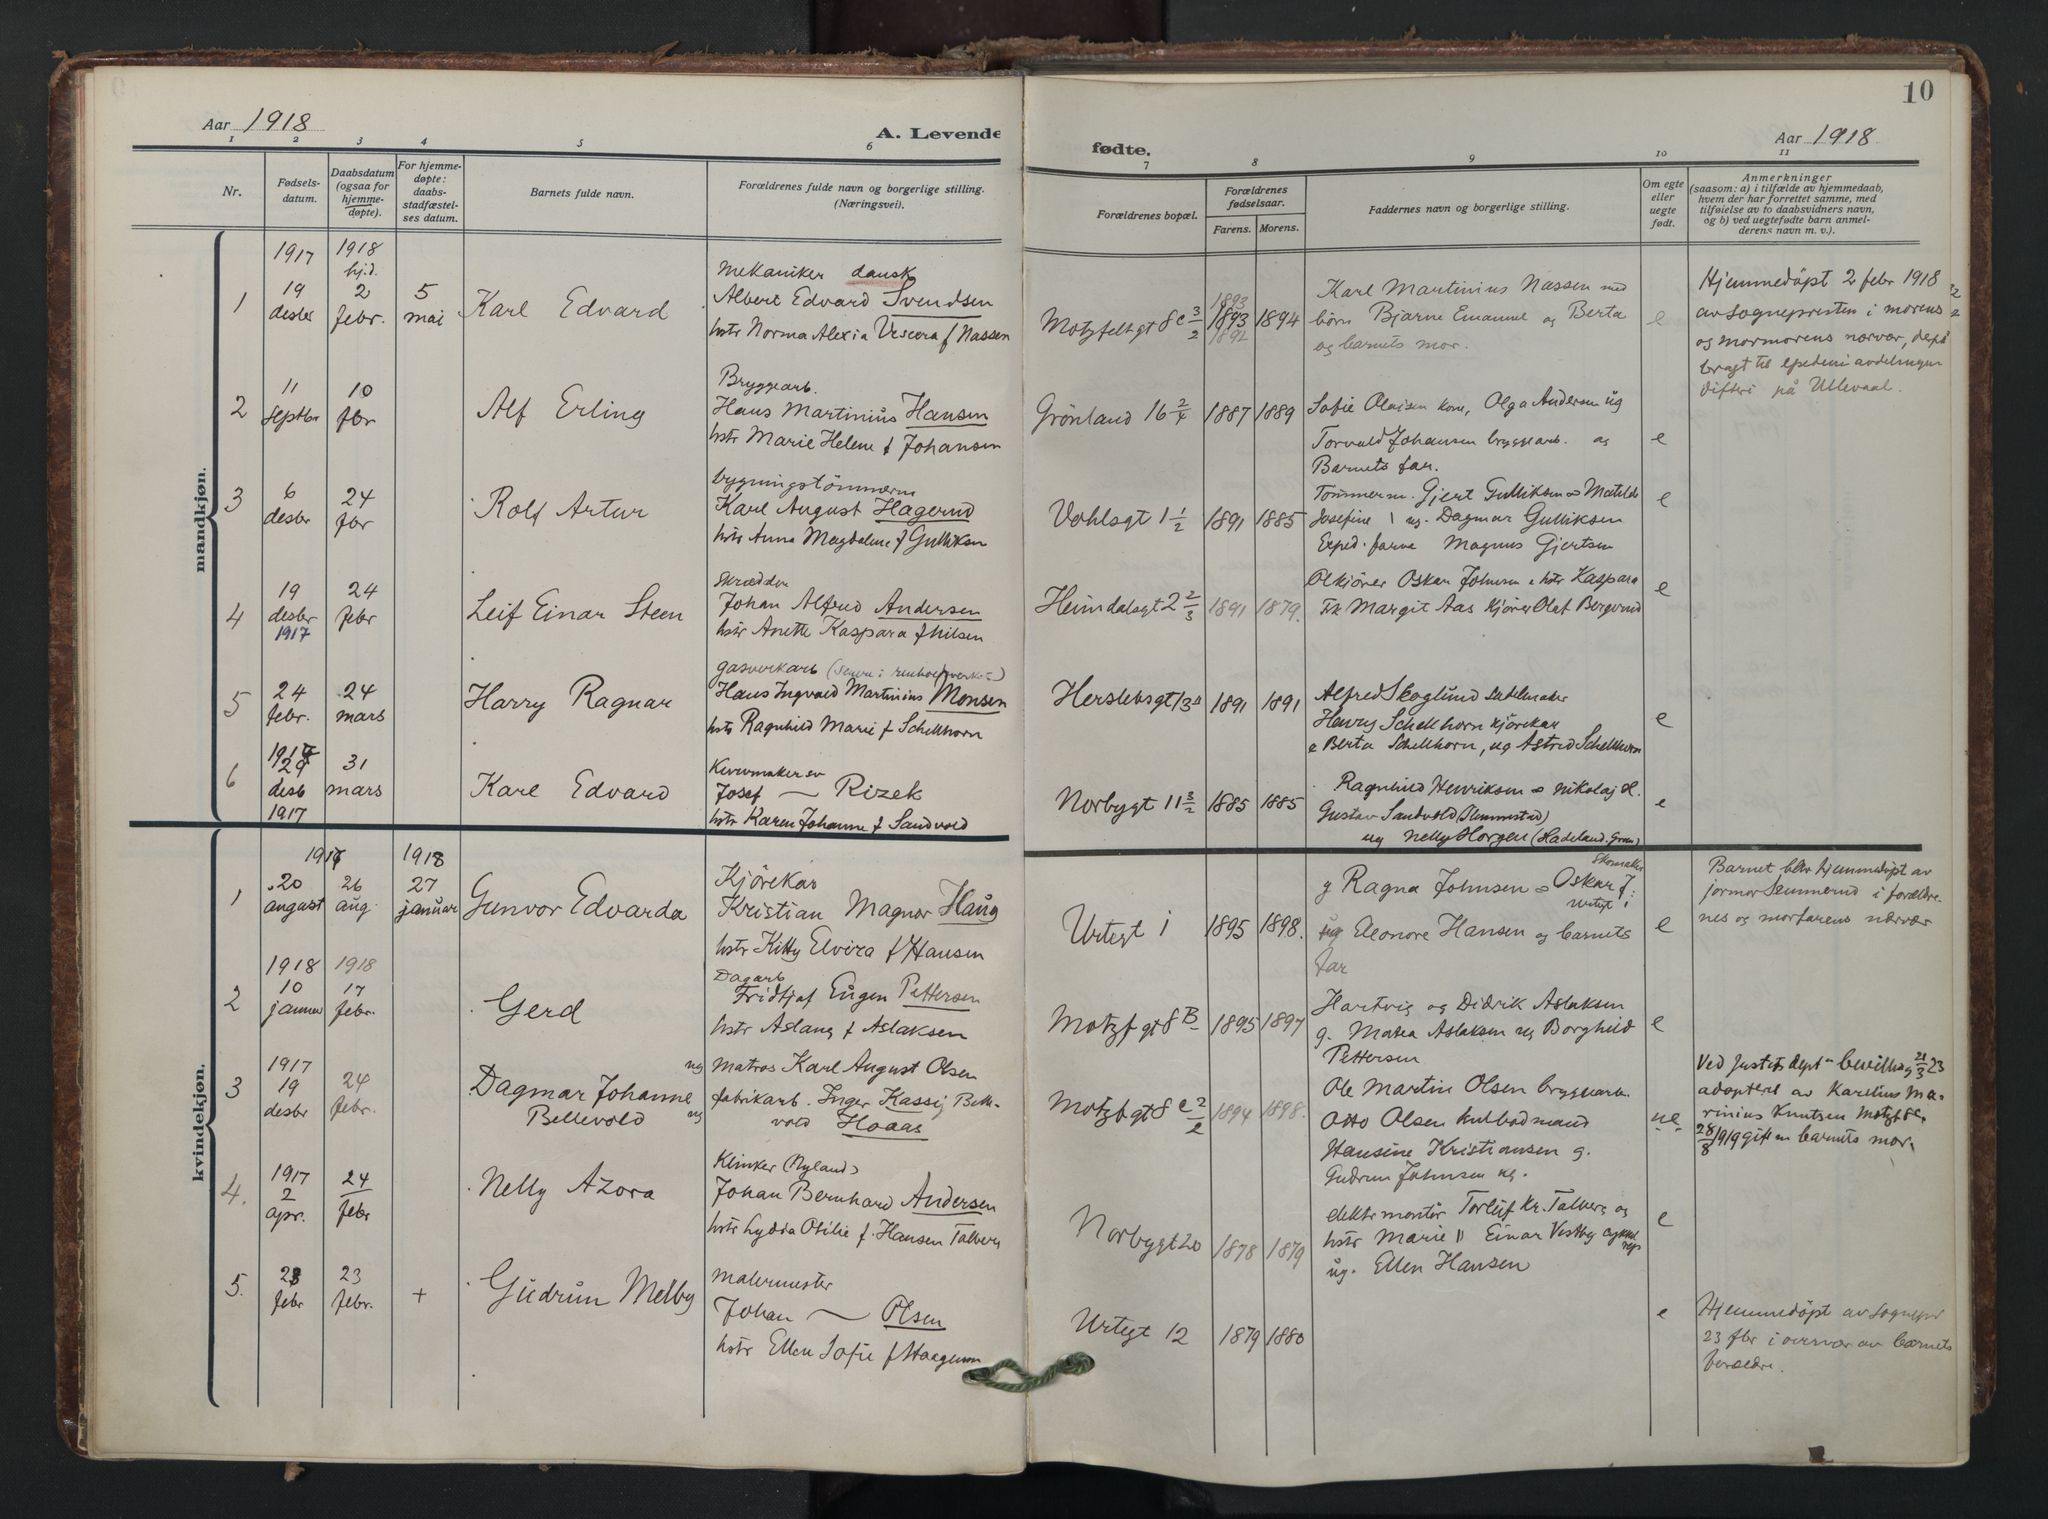 10
Aar 1918
A. Levende
fødte.
Aar 1918
1 2 3 4 5 6
7 8 9 10 11
Nr.
Fødsels-
datum.
Daabsdatum
(ogsaa for
hjemme-
døpte).
For hjemme-
døpte:
daabs-
stadfæstel-
ses datum.
Barnets fulde navn.
Forældrenes fulde navn og borgerlige stilling.
(Næringsvei).
Forældrenes bopæl.
Forældrenes
fødselsaar.
Farens. Morens.
Faddernes navn og borgerlige stilling.
Om egte
eller
uegte
født.
Anmerkninger
(saasom: a) i tilfælde av hjemmedaab,
hvem der har forrettet samme, med
tilføielse av to daabsvidners navn,
og b) ved uegtefødte barn anmel-
derens navn m. v.).
mandkjøn.
1
1917
19
desbr
1918
hj.d.
2
febr.
5
mai
Karl Edvard
Mekaniker dansk
Albert Edvard Svendsen
hstr Norma Alexia Vescora f Nassen
Motzfeltgt 8c 3/2
1893
1893
1892
1894
Karl Martinius Nassen med
børn Bjarne Emanuel og Berta
og barnets mor.
e
Hjemmedöpt 2 febr 1918
av sognepresten i morens
og mormorens nærvær,
bragt til epidemiavdelingen
difteri på Ullevaal.
2
11
septbr
10
fbr
Alf Erling
Bryggearb.
Hans Martinius Hansen
hstr Marie Helene f Johansen
Grönland 16 2/4
1887
1889
Sofie Olaisen kone, Olga Andersen ug
Torvald Johansen bryggearb. og
Barnets far.
e
3
6
desbr
24
fbr
Rolf Artur
bygningstömmerm
Karl August Hagerud
hstr Anna Magdalene f Gulliksen
Vahlsgt 1 1/2
1891
1885
Tömmerm. Gjert Gulliksen o Matilde
Josefine \ ug. Dagmar Gulliksen
Exped. Magnus Gjertsen
e
4
19
desbr
1917
24
febr
Leif Einar Steen
Skrædder
Johan Alfred Andersen
hstr Anette Kaspara f Nilsen
Heimdalsgt 2 2/3
1891
1879.
Ölkjörer Oskar Johnsen o hstr Kaspara
Fk Margit Aas Kjörer Olaf Bergerud
e
5
24
febr.
24
mars
Harry Ragnar
gasverkarb
Hans Ingvald Martinius Monsen
hstr Ragnhild Marie f Schellhorn
Herslebsgt 13
1891
1891
Alfred Skoglund sadelmaker
Henry Schellhorn kjörekar
e Berta Schellhorn, ug Astrid Schellhorn
e
6
1917
29
desb
1917
31
mars
Karl Edvard
Josef — Rizek
hstr Karen Johanne f Sandvold
Norbygt 11 3/2
1885
1885
Ragnhild Henriksen o Nikolaj H.
Gustav Sandvold (Slemmestad)
ug Nelly Horgen (Hadeland. Gran)
e
kvindekjøn.
1
1917
20
august
26
aug.
1918
27
januar
Gunvor Edvarda
Kjörekar
Kristian Magnor Haug
hstr Kitty Elvira f Hansen
Urtegt 1
1895
1898.
Skomaker
g Ragna Johnsen o Oskar J:
Urtegt 1
ug Eleonore Hansen og barnets
far
e
Barnet blev hjemmedöpt av
jormor Sennerud i forældre-
nes og morfarens nærvær
2
1918
10
januar
1918
17
febr.
Gerd
Dagarb
Fridtjof Eugen Pettersen
hstr Aslaug f Aslaksen
Motzfgt 8 B
1895
1897
Hartvig og Didrik Aslaksen
g. Matea Aslaksen ug Borghild
Pettersen
e
3
1917
19
desbr
24
febr.
Dagmar Johanne
Bellevold
ug
ug
matros Karl August Olsen
fabrikarb. Inger Kassij Belle-
vold Hoaas
Motzfgt 8 c 2/2
1894
1898.
Ole Martin Olsen bryggearb.
Otto Olsen kulbodmand
Hansine Kristiansen g.
Gudrun Johnsen ug.
ue
Ved Justitsdept bevillng 21/3 23
adopteret av Karelius Ma-
rinius Knutsen Motzf 8c.
28/8 1919 gift m barnets mor.
4.
1917
2
apr.
24
febr
Nelly Azora
Klinker (Nyland)
Johan Bernhard Andersen
hstr Lydda Otilie f. Hansen Talberg
Norbygt 20
1878
1879
elektr montör Torleif Kr. Talberg og
hstr Marie " Einar Vestby
ug. Ellen Hansen
e
5.
23
febr
23
febr.
+
Gudrun Melby
Malermester
Johan — Olsen
hstr Ellen Sofie f Haagensen
Urtegt 12
1879
1880
e
Hjemmedöpt av sognepr
23 fbr i overvær av barnets
forældre.